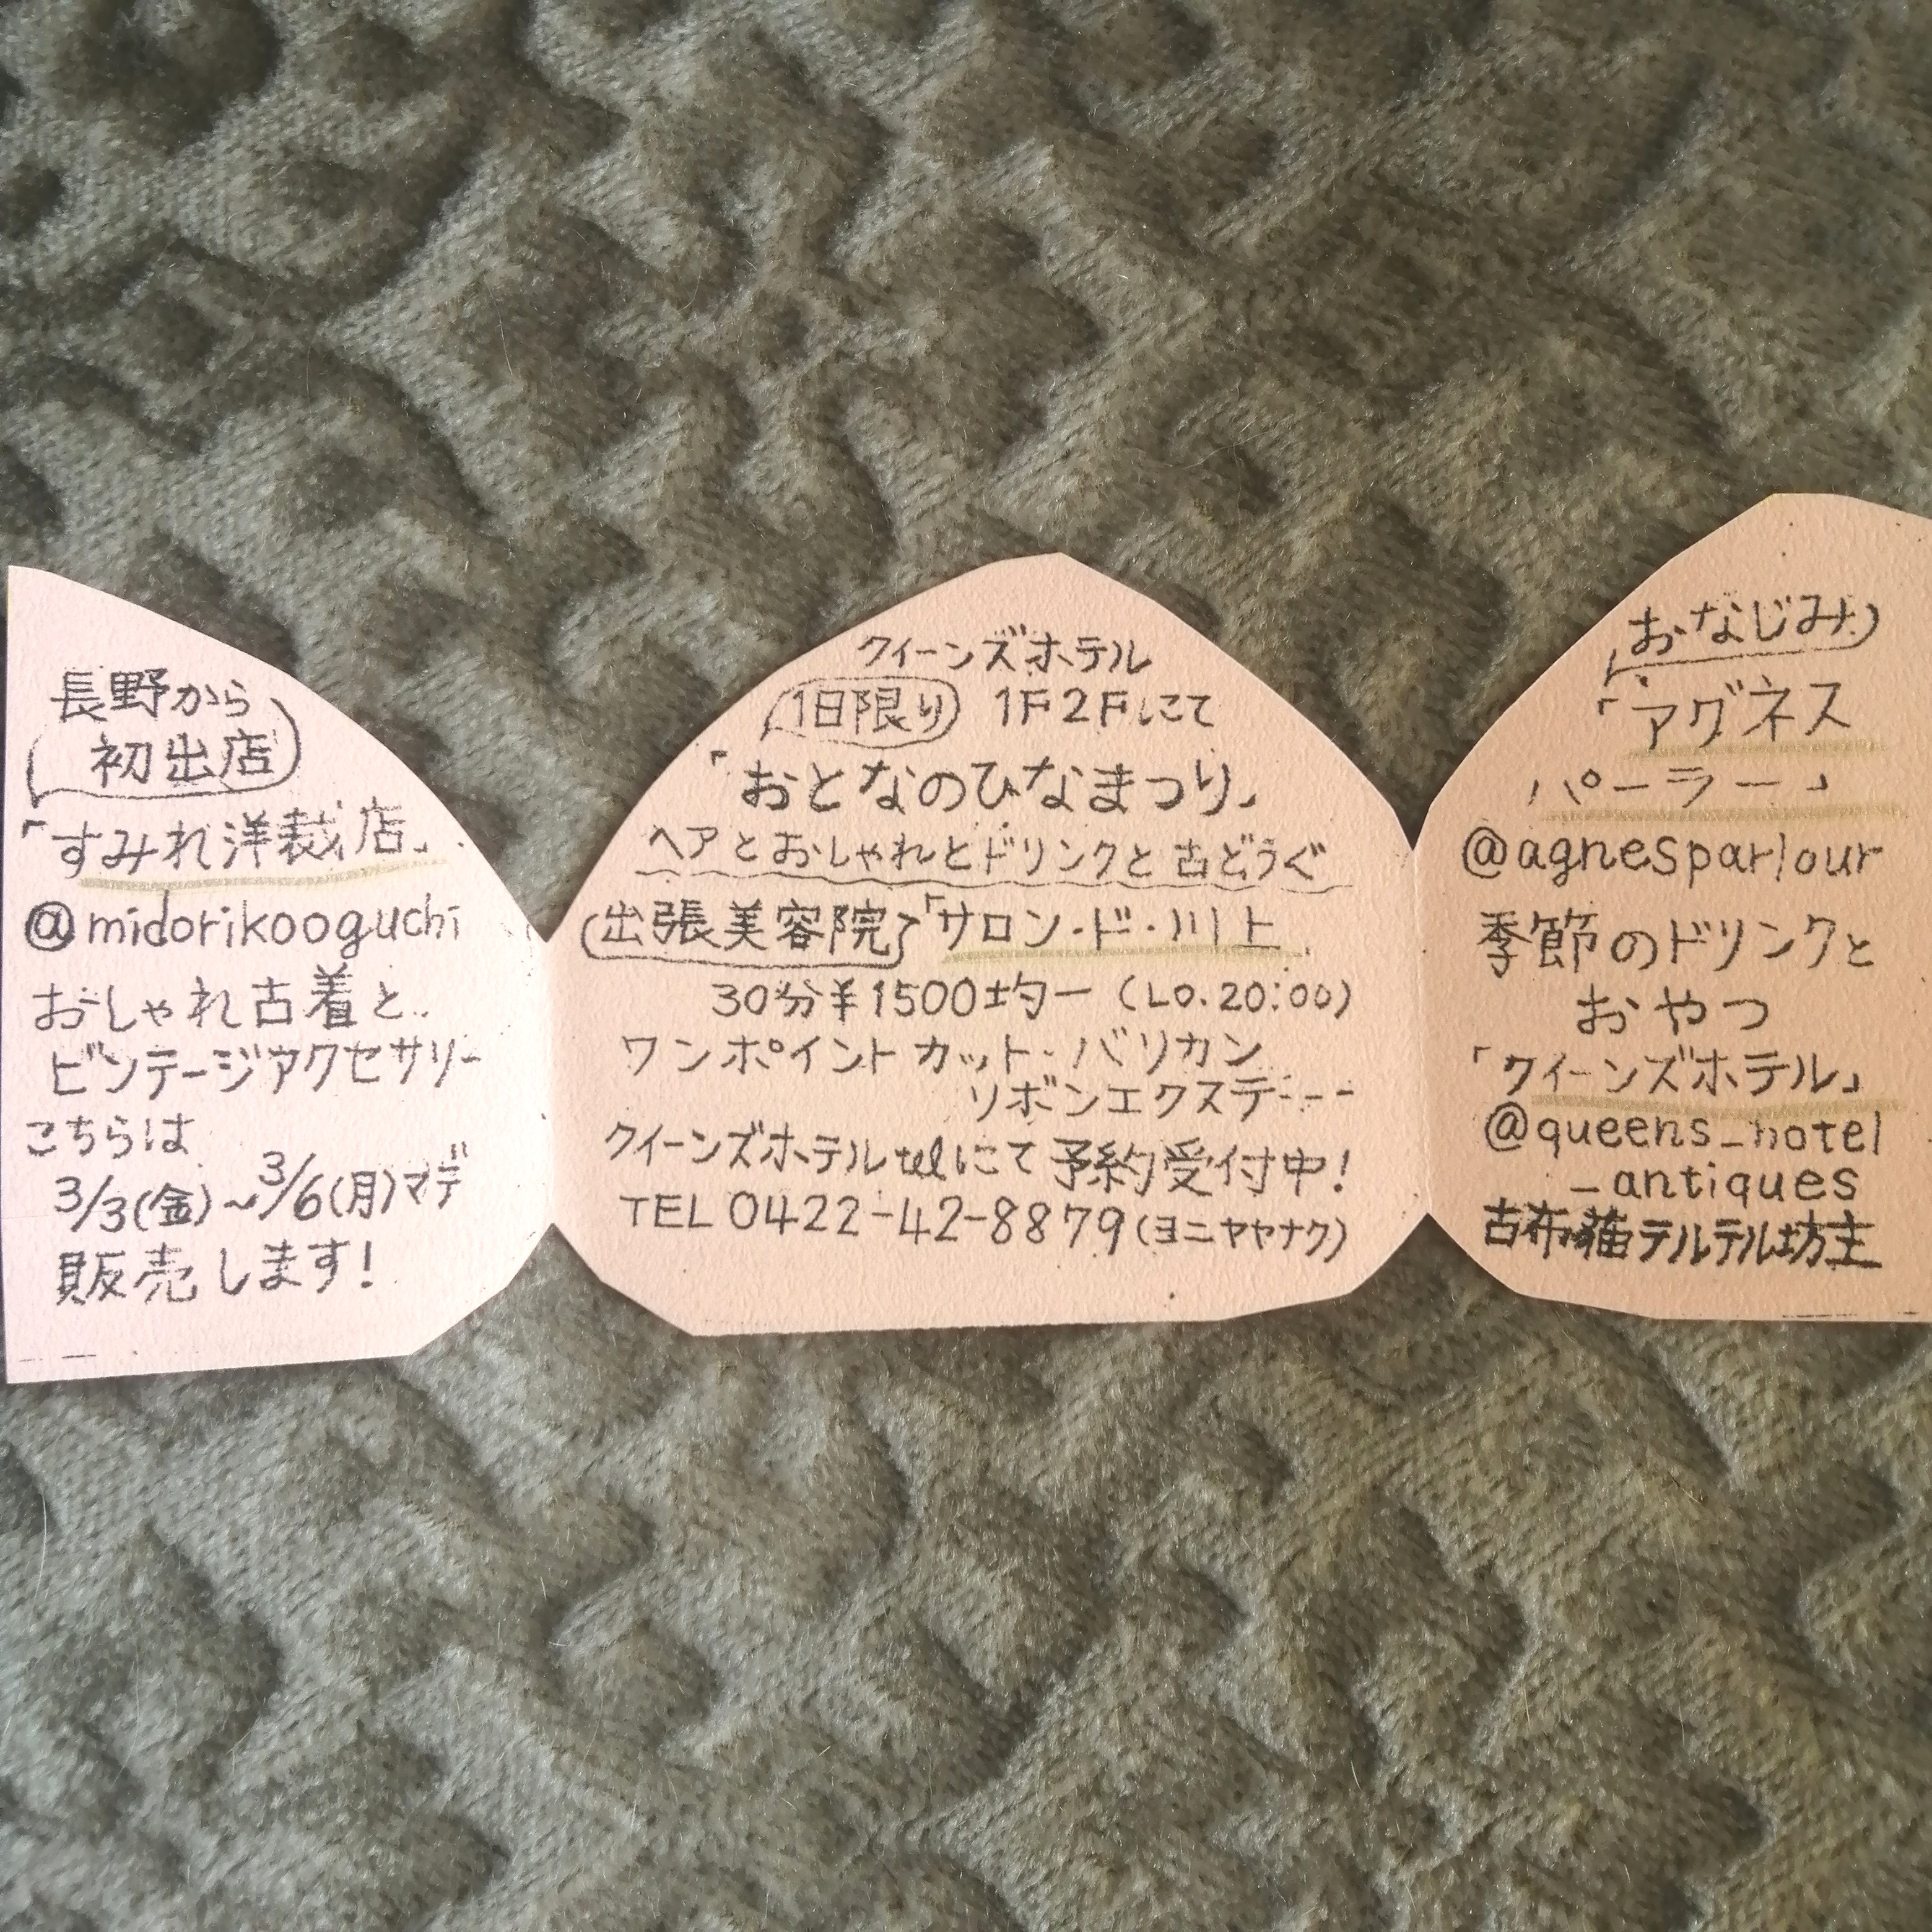 長野から
初出店
「すみれ洋裁店」
@midorikooguchi
おしゃれ古着と
ビンテージアクセサリー
こちらは
3/3(金)~3/6(月)マデ
販売します!
クイーンズホテル
1日限り 1F2Fにて
「おとなのひなまつり」
ヘアとおしゃれとドリンクと古どうぐ
出張美容院「サロン・ド・川上
30分¥1500均一 (LO.20:00)
ワンポイントカット・バリカン
リボンエクステ---
クイーンズホテルtelにて予約受付中!
TEL 0422-42-8879(ヨニヤヤナク)
おなじみ
「アグネス
パーラー」
@agnesparlour
季節のドリンクと
おやつ
「クイーンズホテル」
@queens_hotel
_antiques
テルテル坊主